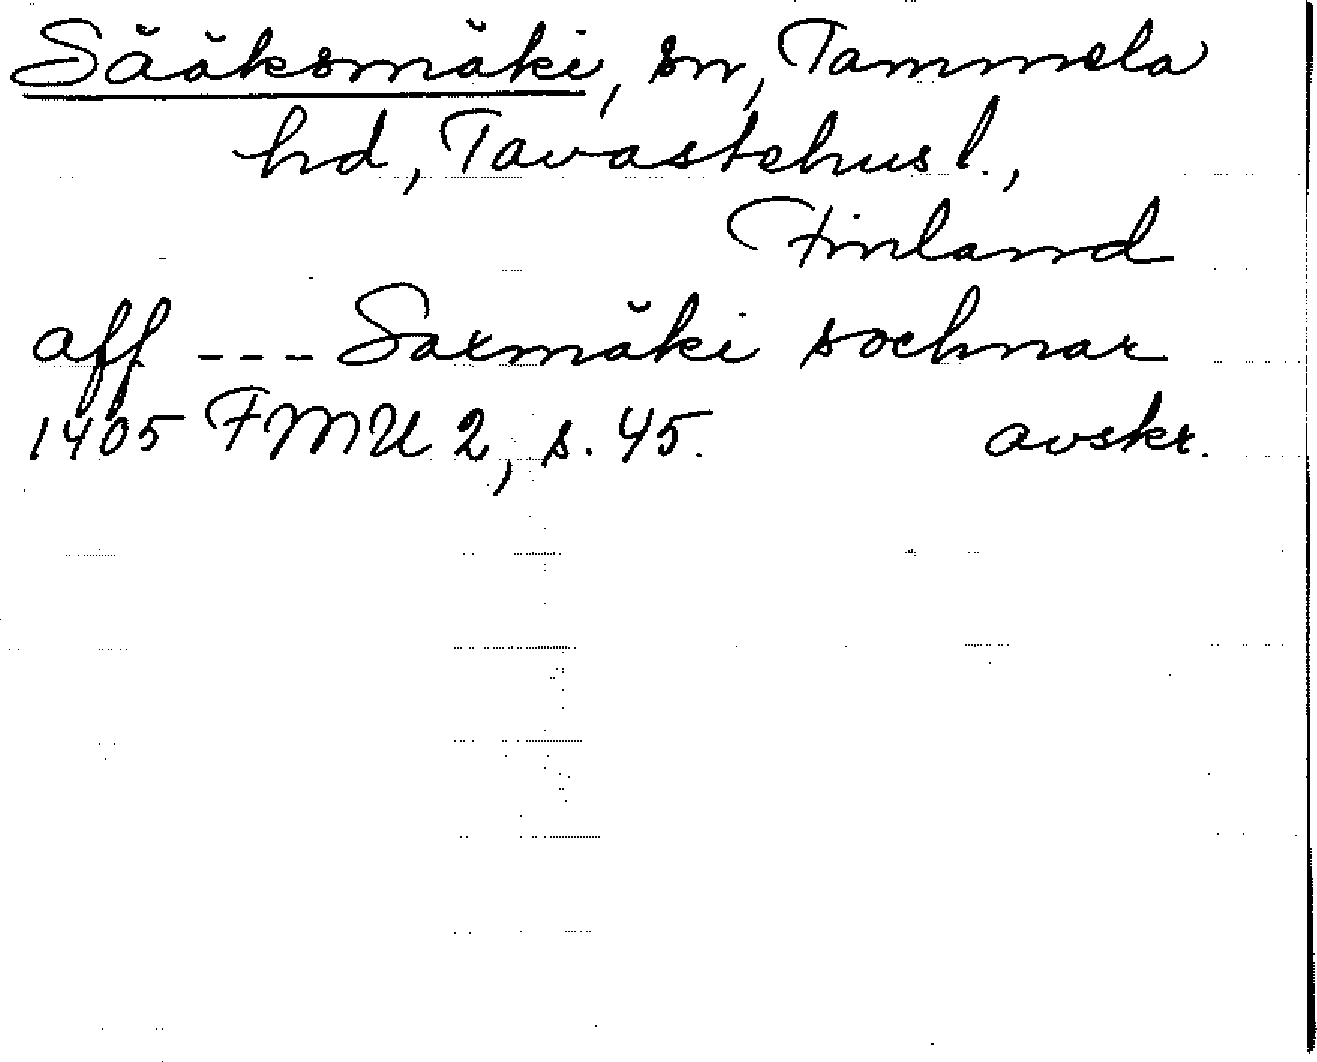 Sääksmäki, sn, Tammela
hd, Tavastehus l.,
Finland
aff --- Saxmäki sochnar
1405 FMU 2, s. 45. avskr.